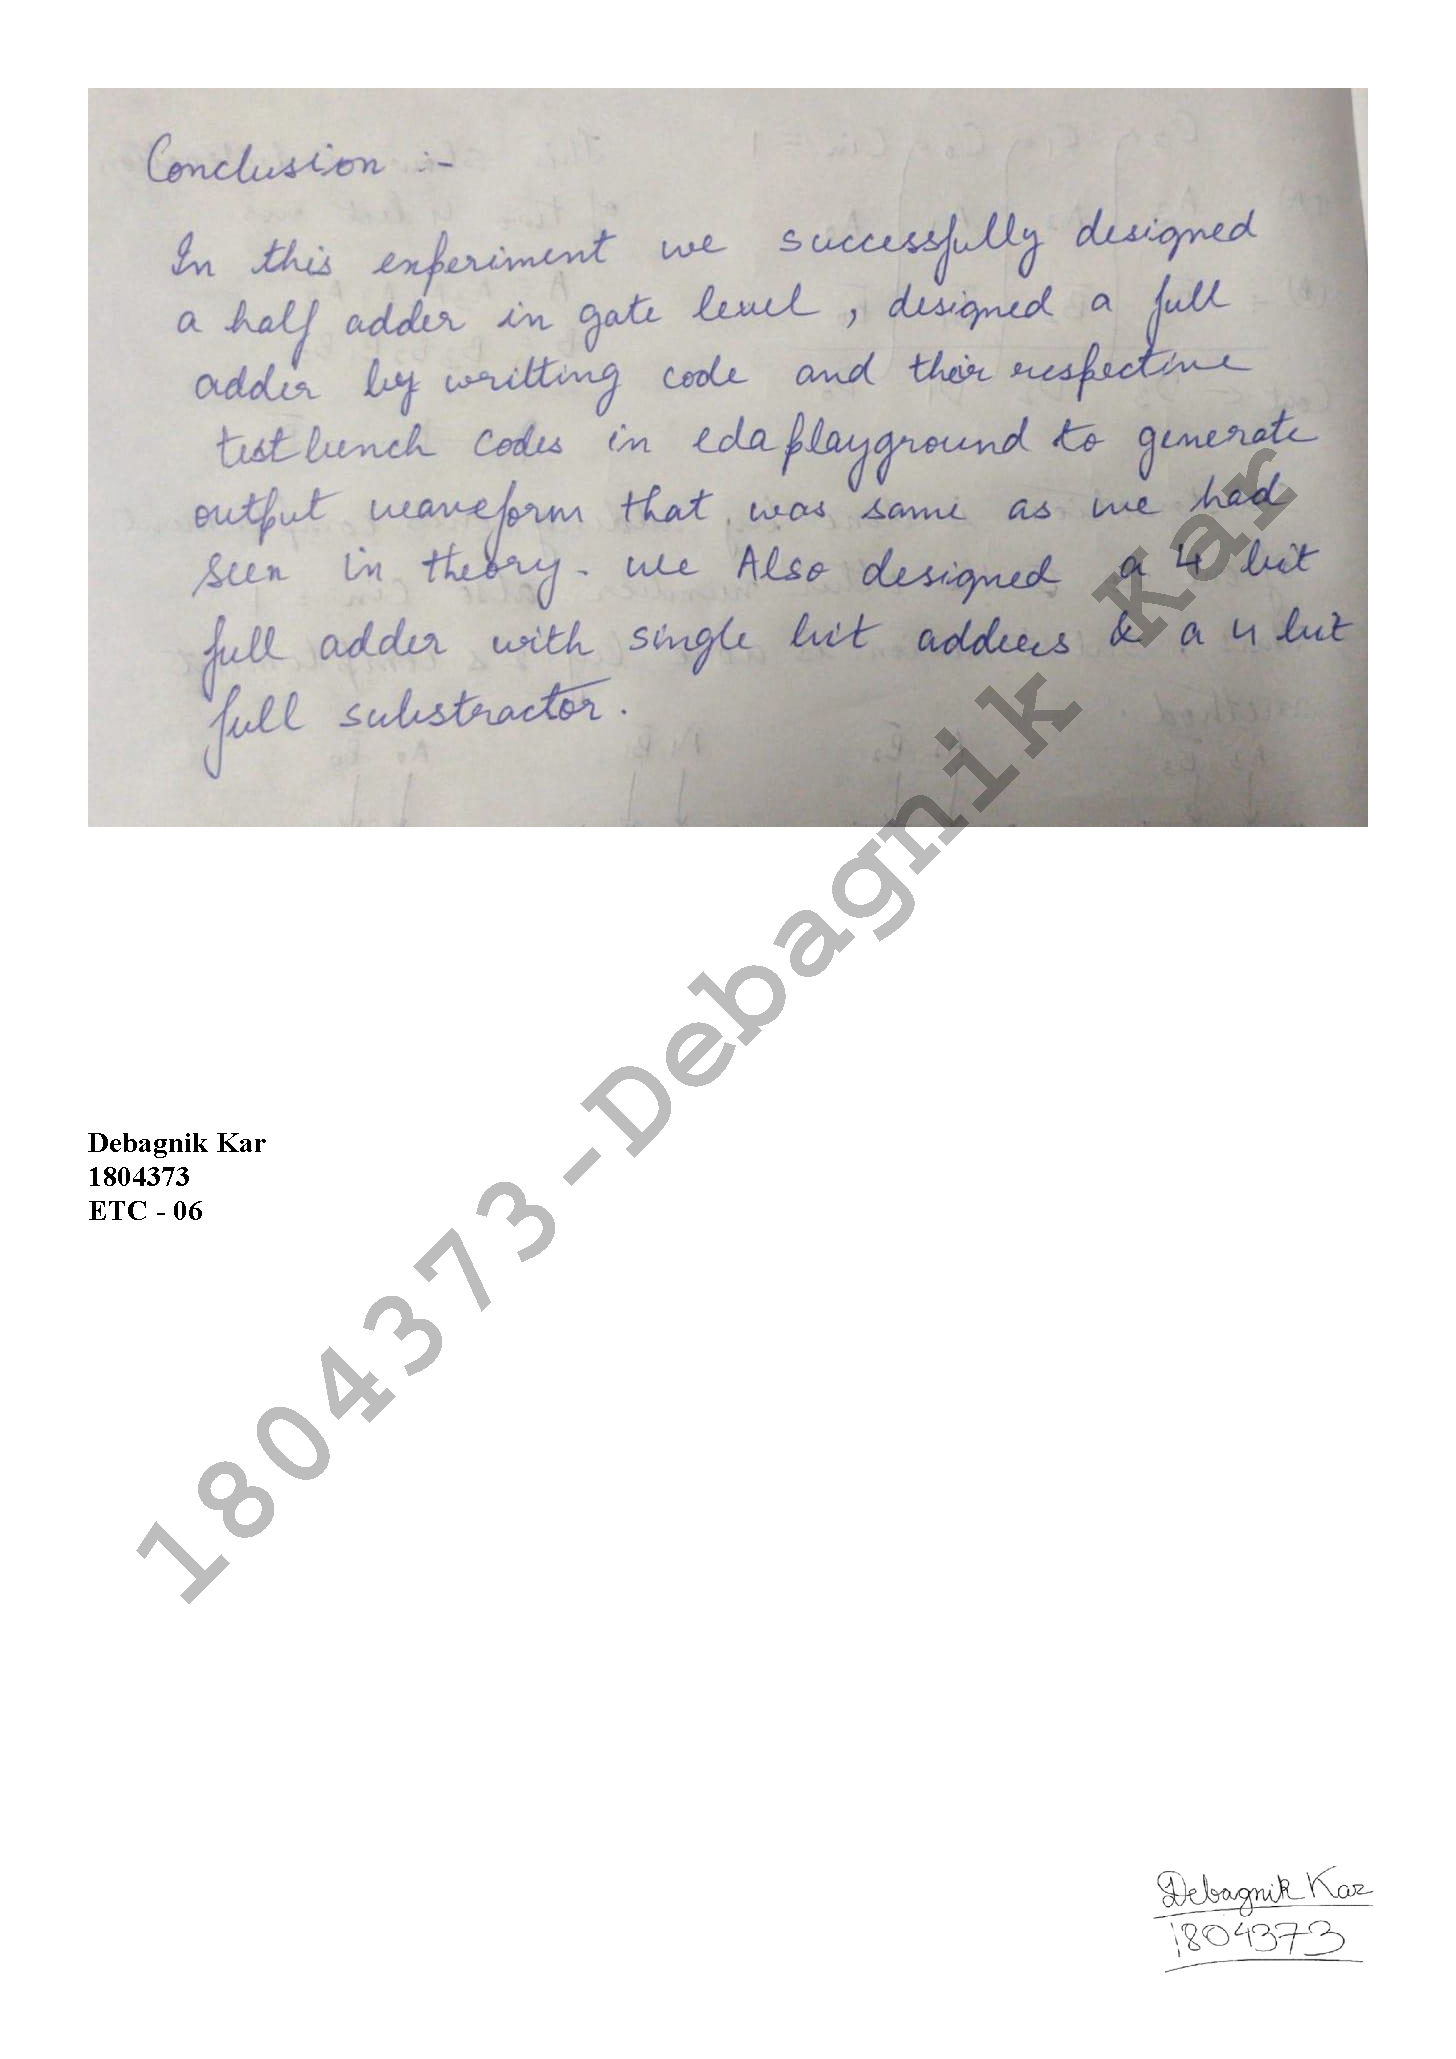 Conclusion :-
In this experiment we successfully designed
a half adder in gate level, designed a full
adder by writting code and their respective
testbench codes in edaplayground to generate
output waveform that was same as we had
seen in theory. we Also designed a 4 bit
full adder with single bit adders & a 4 bit
full substractor.
1804373-Debagnik Kar
Debagnik Kar
1804373
ETC - 06
Debagnik Kar
1804373